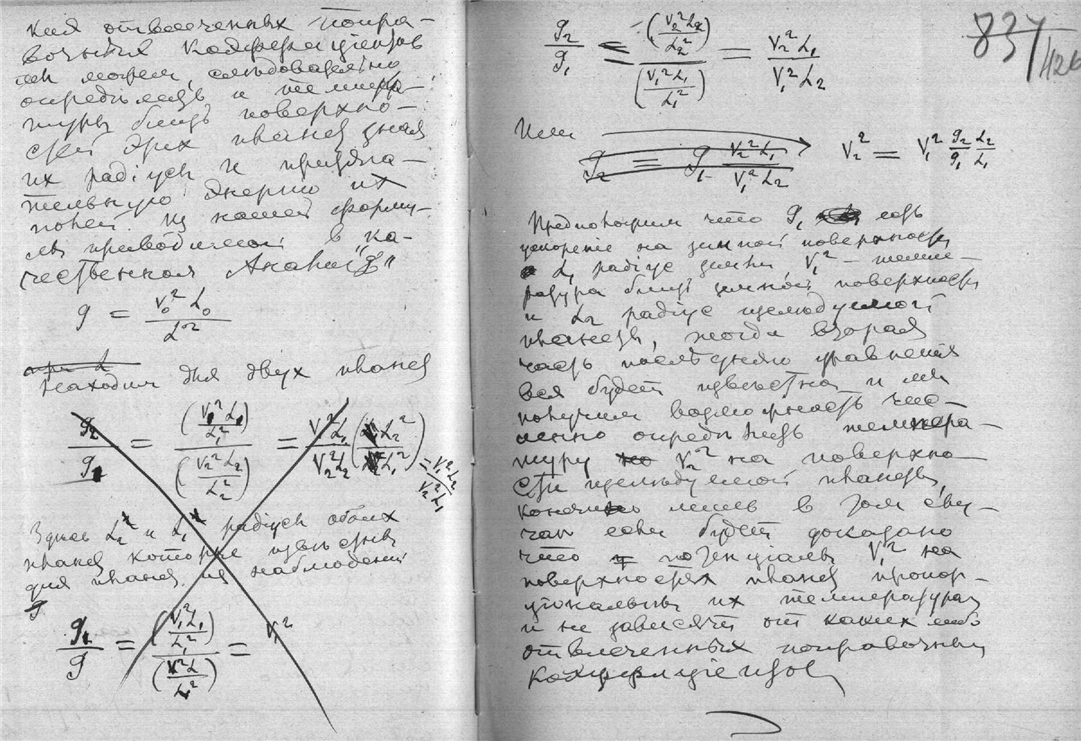 кия отвлеченных попра-
вочных коэффициентов
мы можем, следовательно
определить и темпера-
туры близь поверхно-
стей этих планет зная
их радиусы и притяга-
тельную энергию их
полей. Из нашей форму-
лы приводимой в „ка-
чественном Анализѣ“
g = V₀² L₀ / L²
Находим для двух планет
g₂ / g₁ = (V₁² L₁ / L₁²) / (V₂² L₂ / L₂²) = V₁² L₁ / V₂² L₂ (L₂² / L₁²) = V₁² L₂ / V₂² L₁
Здесь L₂ и L₁ радіусы обоих
планет которые извѣстны
для планет из наблюдений
g₁ / g = (V₁² L₁ / L₁²) / (V² L / L²) = V₁²
837/426
g₂ / g₁ = (V₂² L₂ / L₂²) / (V₁² L₁ / L₁²) = V₂² L₁ / V₁² L₂
Или
g₂ = g₁ V₂² L₁ / V₁² L₂
V₂² = V₁² g₂ L₂ / g₁ L₁
Предположим что g₁ есть
ускорение на земной поверхности
L₁ радіус земли, V₁² — темпе-
ратура близь земной поверхности
и L₂ радіус исследуемой
планеты, тогда вторая
часть последняго уравнения
вся будет извѣстна и мы
получим возможность чис-
ленно определить темпера-
туру V₂² на поверхно-
сти исследуемой планеты,
конечно лишь в том слу-
чае если будет доказано
что потенциалы V² на
поверхностях планет пропор-
ціональны их температурам
и не зависят от каких либо
отвлеченных поправочных
коэффициентов